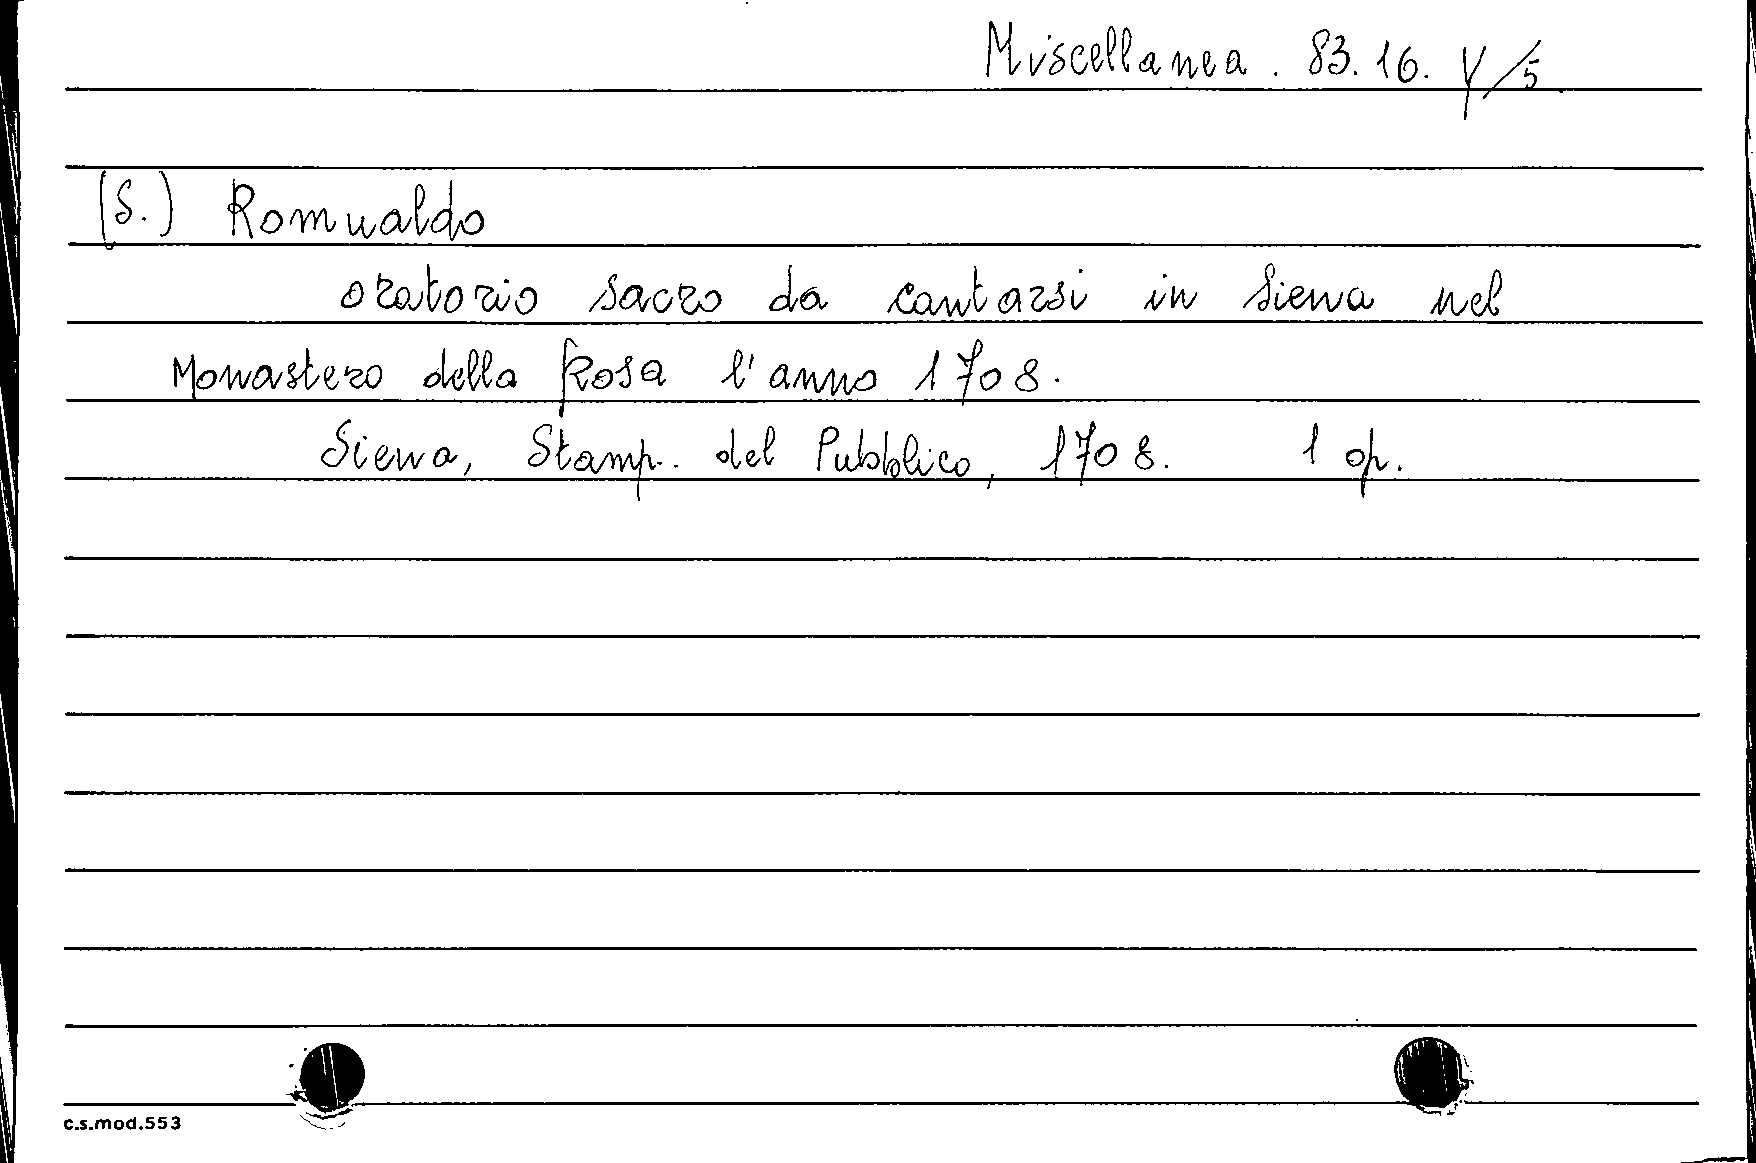 Miscellanea. 83.16. Y/5.
(S.) Romualdo
oratorio sacro da cantarsi in Siena nel
Monastero della Rosa l'anno 1708.
Siena, Stamp. del Pubblico, 1708. 1 op.
c.s.mod.553